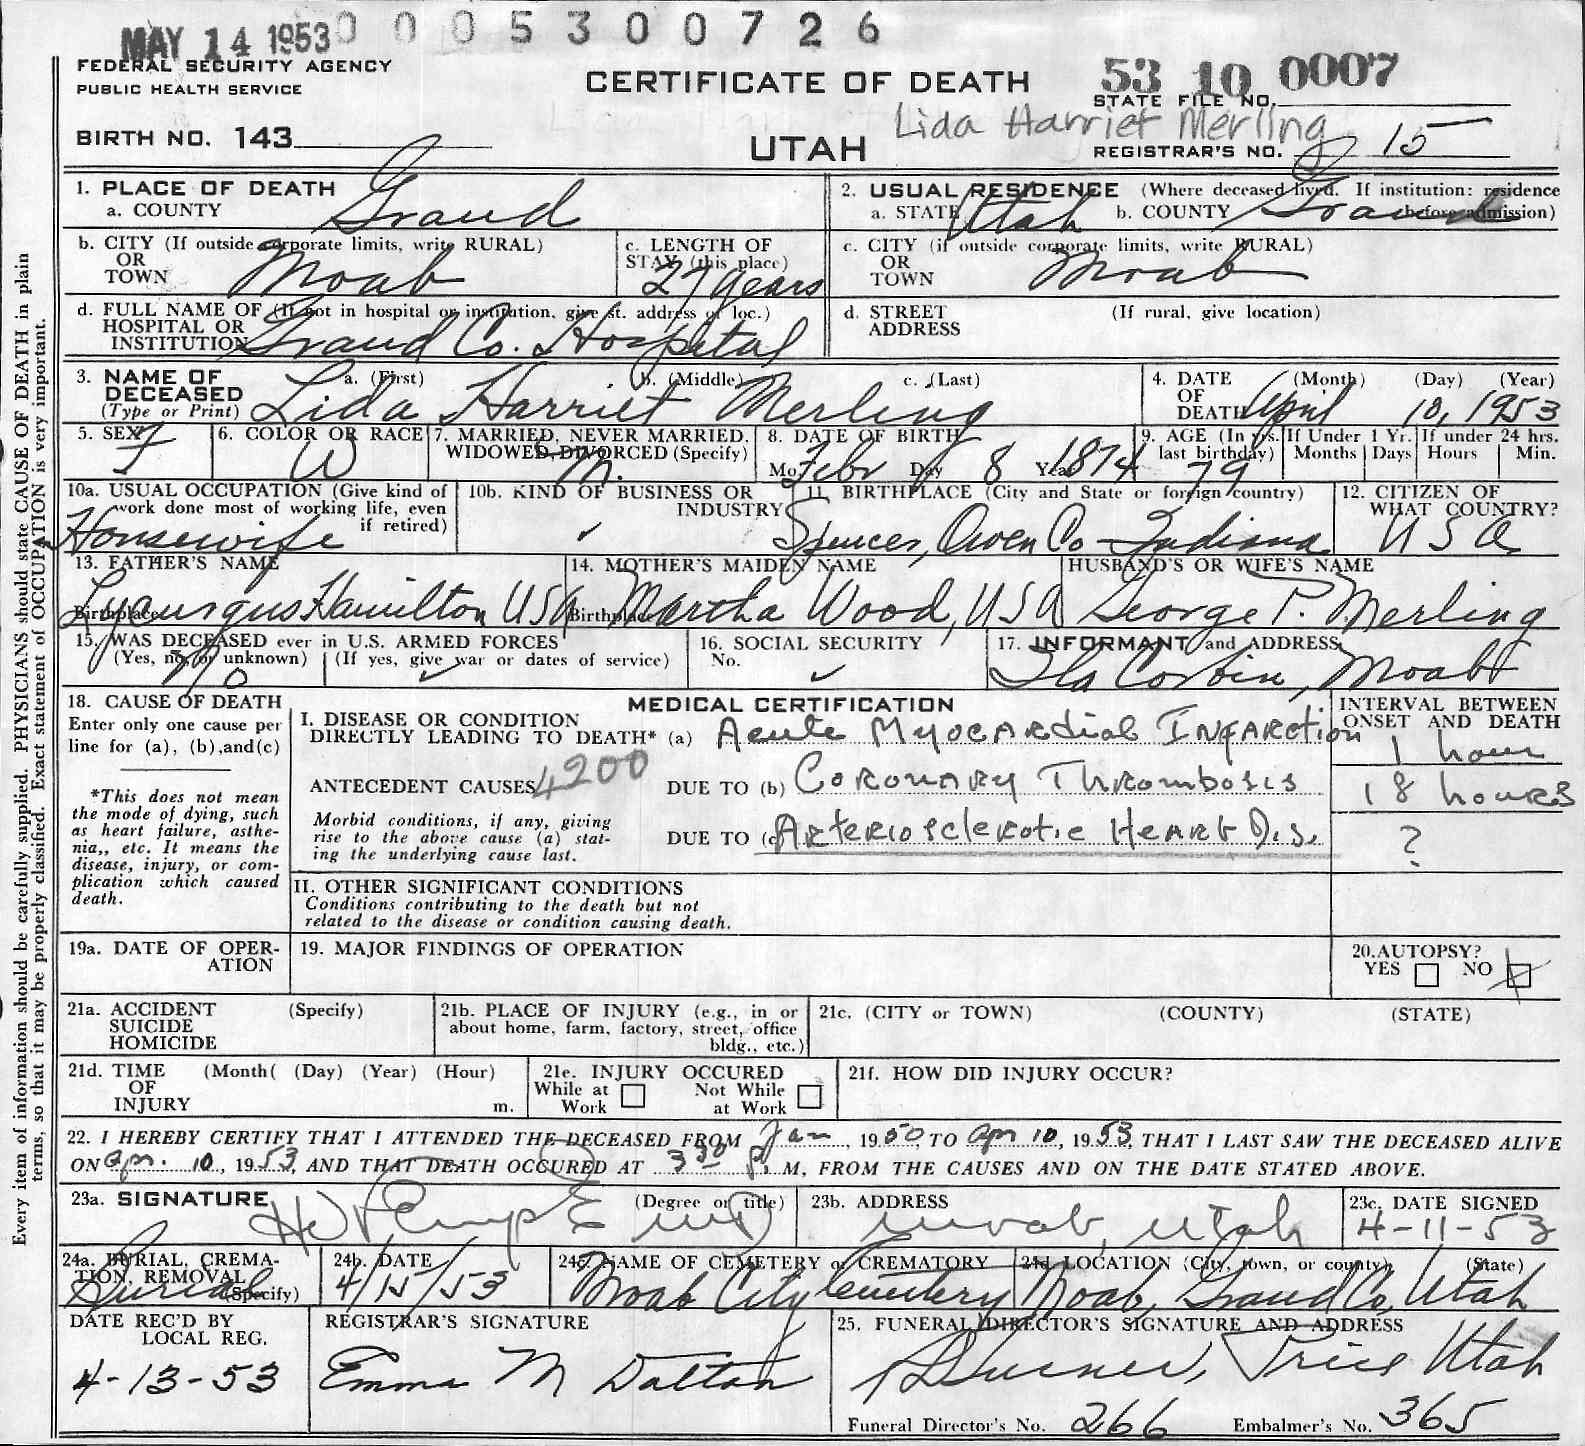 MAY 14 1953 0 0 0 5 3 0 0 7 2 6
FEDERAL SECURITY AGENCY
PUBLIC HEALTH SERVICE
CERTIFICATE OF DEATH
53 10 0007
STATE FILE NO.
Lida Harriet Merling
BIRTH NO. 143
UTAH
REGISTRAR'S NO. 15
1. PLACE OF DEATH
a. COUNTY Grand
2. USUAL RESIDENCE (Where deceased lived. If institution: residence
a. STATE Utah b. COUNTY Grand before admission)
b. CITY (If outside corporate limits, write RURAL)
OR
TOWN Moab
c. LENGTH OF
STAY (this place)
27 years
c. CITY (if outside corporate limits, write RURAL)
OR
TOWN Moab
d. FULL NAME OF (If not in hospital or institution, give st. address or loc.)
HOSPITAL OR
INSTITUTION Grand Co. Hospital
d. STREET (If rural, give location)
ADDRESS
3. NAME OF a. (First) b. (Middle) c. (Last)
DECEASED
(Type or Print) Lida Harriet Merling
4. DATE (Month) (Day) (Year)
OF
DEATH April 10, 1953
5. SEX
F
6. COLOR OR RACE
W
7. MARRIED, NEVER MARRIED,
WIDOWED, DIVORCED (Specify)
M.
8. DATE OF BIRTH
Mo. Febr Day 8 Year 1874
9. AGE (In yrs.
last birthday)
79
If Under 1 Yr.
Months Days
If under 24 hrs.
Hours Min.
10a. USUAL OCCUPATION (Give kind of
work done most of working life, even
if retired)
Housewife
10b. KIND OF BUSINESS OR
INDUSTRY
11. BIRTHPLACE (City and State or foreign country)
Spencer, Owen Co Indiana
12. CITIZEN OF
WHAT COUNTRY?
USA
13. FATHER'S NAME
Lycurgus Hamilton USA
Birthplace
14. MOTHER'S MAIDEN NAME
Martha Wood, USA
Birthplace
HUSBAND'S OR WIFE'S NAME
George P. Merling
15. WAS DECEASED ever in U.S. ARMED FORCES
(Yes, no, or unknown) (If yes, give war or dates of service)
No
16. SOCIAL SECURITY
No.
17. INFORMANT and ADDRESS
Ila Corbin, Moab
18. CAUSE OF DEATH
Enter only one cause per
line for (a), (b), and (c)
*This does not mean
the mode of dying, such
as heart failure, asthe-
nia,, etc. It means the
disease, injury, or com-
plication which caused
death.
MEDICAL CERTIFICATION
I. DISEASE OR CONDITION
DIRECTLY LEADING TO DEATH* (a) Acute Myocardial Infarction
ANTECEDENT CAUSES 4200
DUE TO (b) Coronary Thrombosis
Morbid conditions, if any, giving
rise to the above cause (a) stat-
ing the underlying cause last.
DUE TO (c) Arteriosclerotic Heart Dis.
INTERVAL BETWEEN
ONSET AND DEATH
1 hour
18 hours
?
II. OTHER SIGNIFICANT CONDITIONS
Conditions contributing to the death but not
related to the disease or condition causing death.
19a. DATE OF OPER-
ATION
19. MAJOR FINDINGS OF OPERATION
20. AUTOPSY?
YES NO X
21a. ACCIDENT (Specify)
SUICIDE
HOMICIDE
21b. PLACE OF INJURY (e.g., in or
about home, farm, factory, street, office
bldg., etc.)
21c. (CITY or TOWN) (COUNTY) (STATE)
21d. TIME (Month( (Day) (Year) (Hour)
OF
INJURY m.
21e. INJURY OCCURED
While at Not While
Work at Work
21f. HOW DID INJURY OCCUR?
22. I HEREBY CERTIFY THAT I ATTENDED THE DECEASED FROM Jan, 1950, TO Apr 10, 1953, THAT I LAST SAW THE DECEASED ALIVE
ON Apr. 10, 1953, AND THAT DEATH OCCURED AT 330 P. M, FROM THE CAUSES AND ON THE DATE STATED ABOVE.
23a. SIGNATURE (Degree or title)
MD
23b. ADDRESS
Moab, Utah
23c. DATE SIGNED
4-11-53
24a. BURIAL, CREMA-
TION, REMOVAL
(Specify)
Burial
24b. DATE
4/15/53
24c. NAME OF CEMETERY or CREMATORY
Moab City Cemetery
24d. LOCATION (City, town, or county) (State)
Moab, Grand Co, Utah
DATE REC'D BY
LOCAL REG.
4-13-53
REGISTRAR'S SIGNATURE
Emma M Dalton
25. FUNERAL DIRECTOR'S SIGNATURE AND ADDRESS
Price Utah
Funeral Director's No. 266 Embalmer's No. 365
Every item of information should be carefully supplied. PHYSICIANS should state CAUSE OF DEATH in plain
terms, so that it may be properly classified. Exact statement of OCCUPATION is very important.